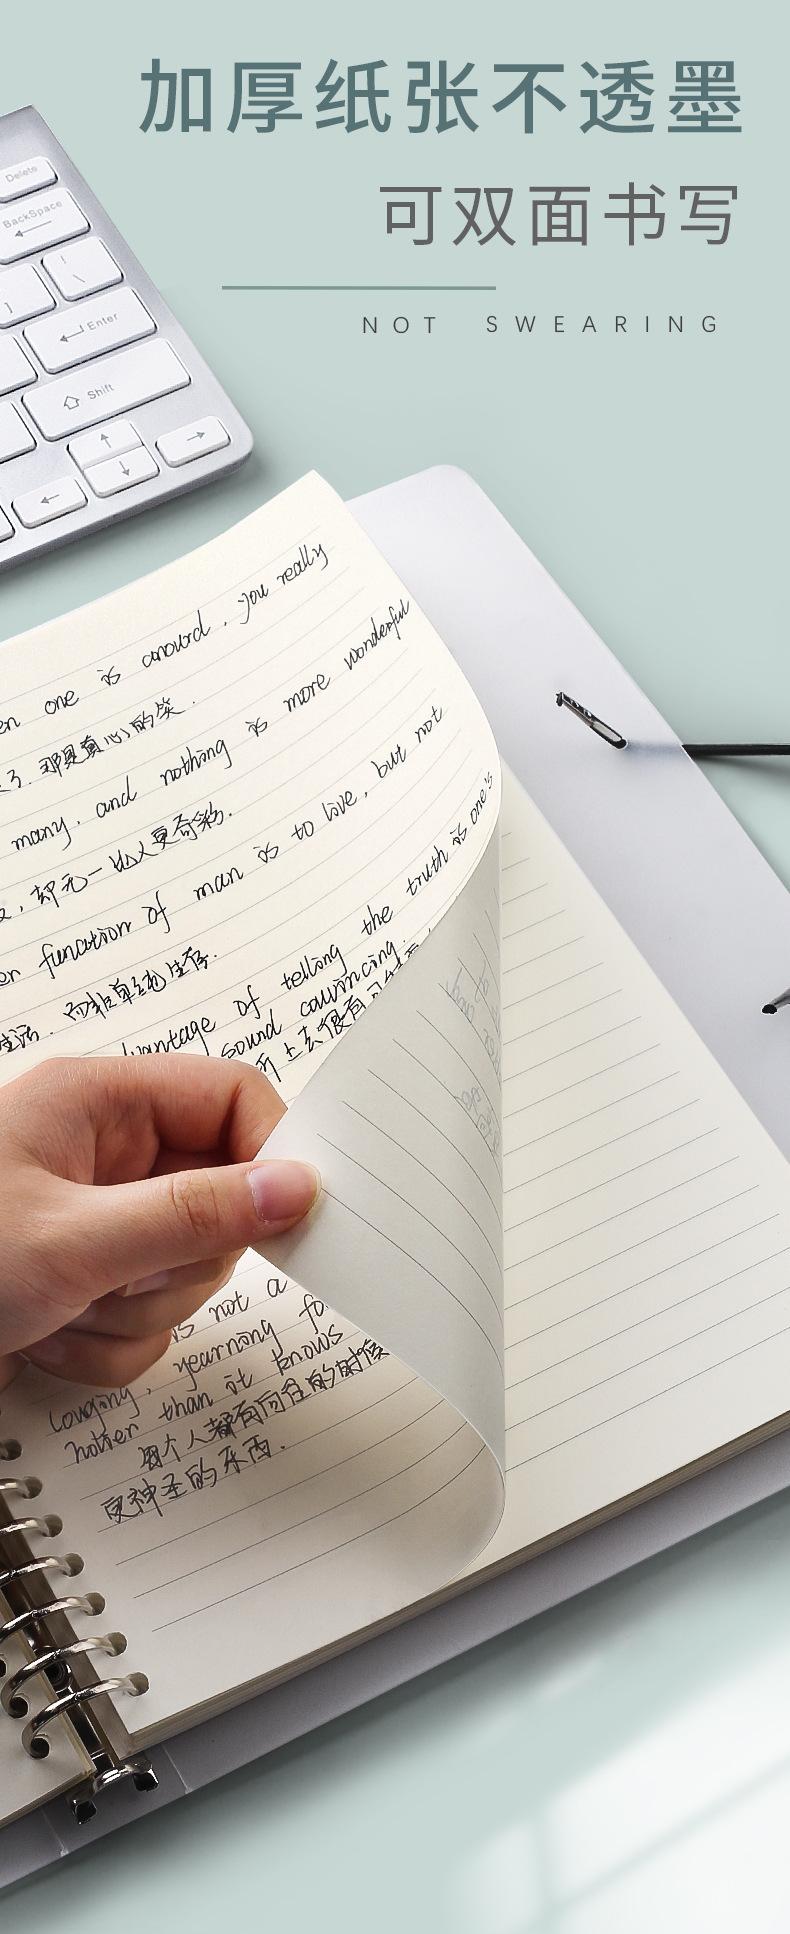 加厚纸张不透墨
可双面书写
NOT SWEARING
Delete
BackSpace
Enter
Shift
en one is anourd, you really
那是真心的笑.
many, and nothing is more wonderful
, 却无一比人更奇彩.
er function of man is to live, but not
生活. 而非单纯生存.
dvantage of telling the truth is one's
sound convincing.
听上去很有
is not a
Longing, yearning fo
holier than it knows
每个人都有向往的时候
更神圣的东西.